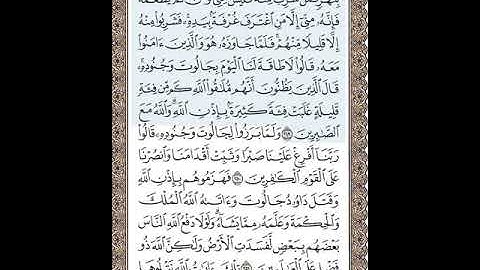 بِنَهَرٍ فَمَن شَرِبَ مِنْهُ فَلَيْسَ مِنِّي وَمَن لَّمْ يَطْعَمْهُ
فَإِنَّهُۥ مِنِّيٓ إِلَّا مَنِ ٱغْتَرَفَ غُرْفَةَۢ بِيَدِهِۦۚ فَشَرِبُوا۟ مِنْهُ
إِلَّا قَلِيلًا مِّنْهُمْۚ فَلَمَّا جَاوَزَهُۥ هُوَ وَٱلَّذِينَ ءَامَنُوا۟
مَعَهُۥ قَالُوا۟ لَا طَاقَةَ لَنَا ٱلْيَوْمَ بِجَالُوتَ وَجُنُودِهِۦۚ
قَالَ ٱلَّذِينَ يَظُنُّونَ أَنَّهُم مُّلَٰقُوا۟ ٱللَّهِ كَم مِّن فِئَةٍ
قَلِيلَةٍ غَلَبَتْ فِئَةً كَثِيرَةَۢ بِإِذْنِ ٱللَّهِۗ وَٱللَّهُ مَعَ
ٱلصَّٰبِرِينَ ٢٤٩ وَلَمَّا بَرَزُوا۟ لِجَالُوتَ وَجُنُودِهِۦ قَالُوا۟
رَبَّنَآ أَفْرِغْ عَلَيْنَا صَبْرًا وَثَبِّتْ أَقْدَامَنَا وَٱنصُرْنَا
عَلَى ٱلْقَوْمِ ٱلْكَٰفِرِينَ ٢٥٠ فَهَزَمُوهُم بِإِذْنِ ٱللَّهِ
وَقَتَلَ دَاوُۥدُ جَالُوتَ وَءَاتَىٰهُ ٱللَّهُ ٱلْمُلْكَ
وَٱلْحِكْمَةَ وَعَلَّمَهُۥ مِمَّا يَشَآءُۗ وَلَوْلَا دَفْعُ ٱللَّهِ ٱلنَّاسَ
بَعْضَهُم بِبَعْضٍ لَّفَسَدَتِ ٱلْأَرْضُ وَلَٰكِنَّ ٱللَّهَ ذُو
فَضْلٍ عَلَى ٱلْعَٰلَمِينَ ٢٥١ تِلْكَ ءَايَٰتُ ٱللَّهِ نَتْلُوهَا